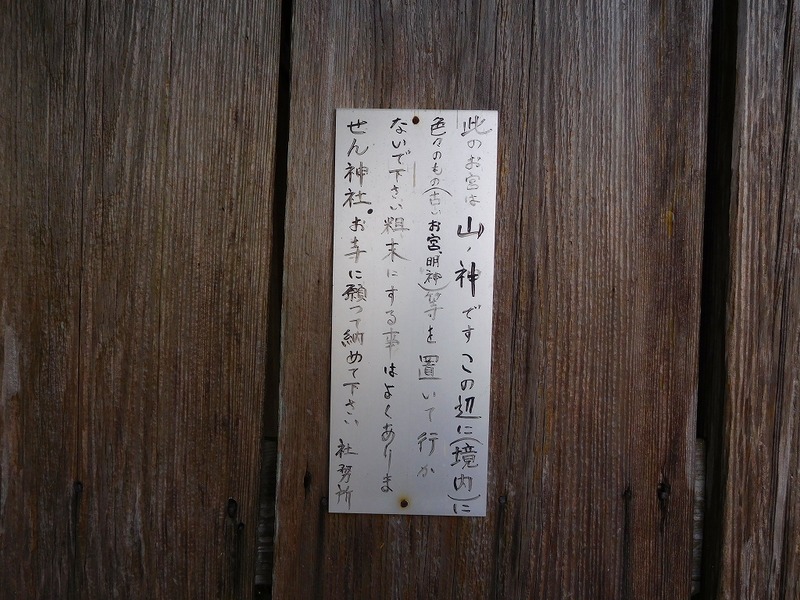 此のお宮は山ノ神ですこの辺に(境内)に
色々のもの(古いお宮、明神)等を置いて行か
ないで下さい粗末にする事はよくありま
せん神社。お寺に願って納めて下さい
社務所